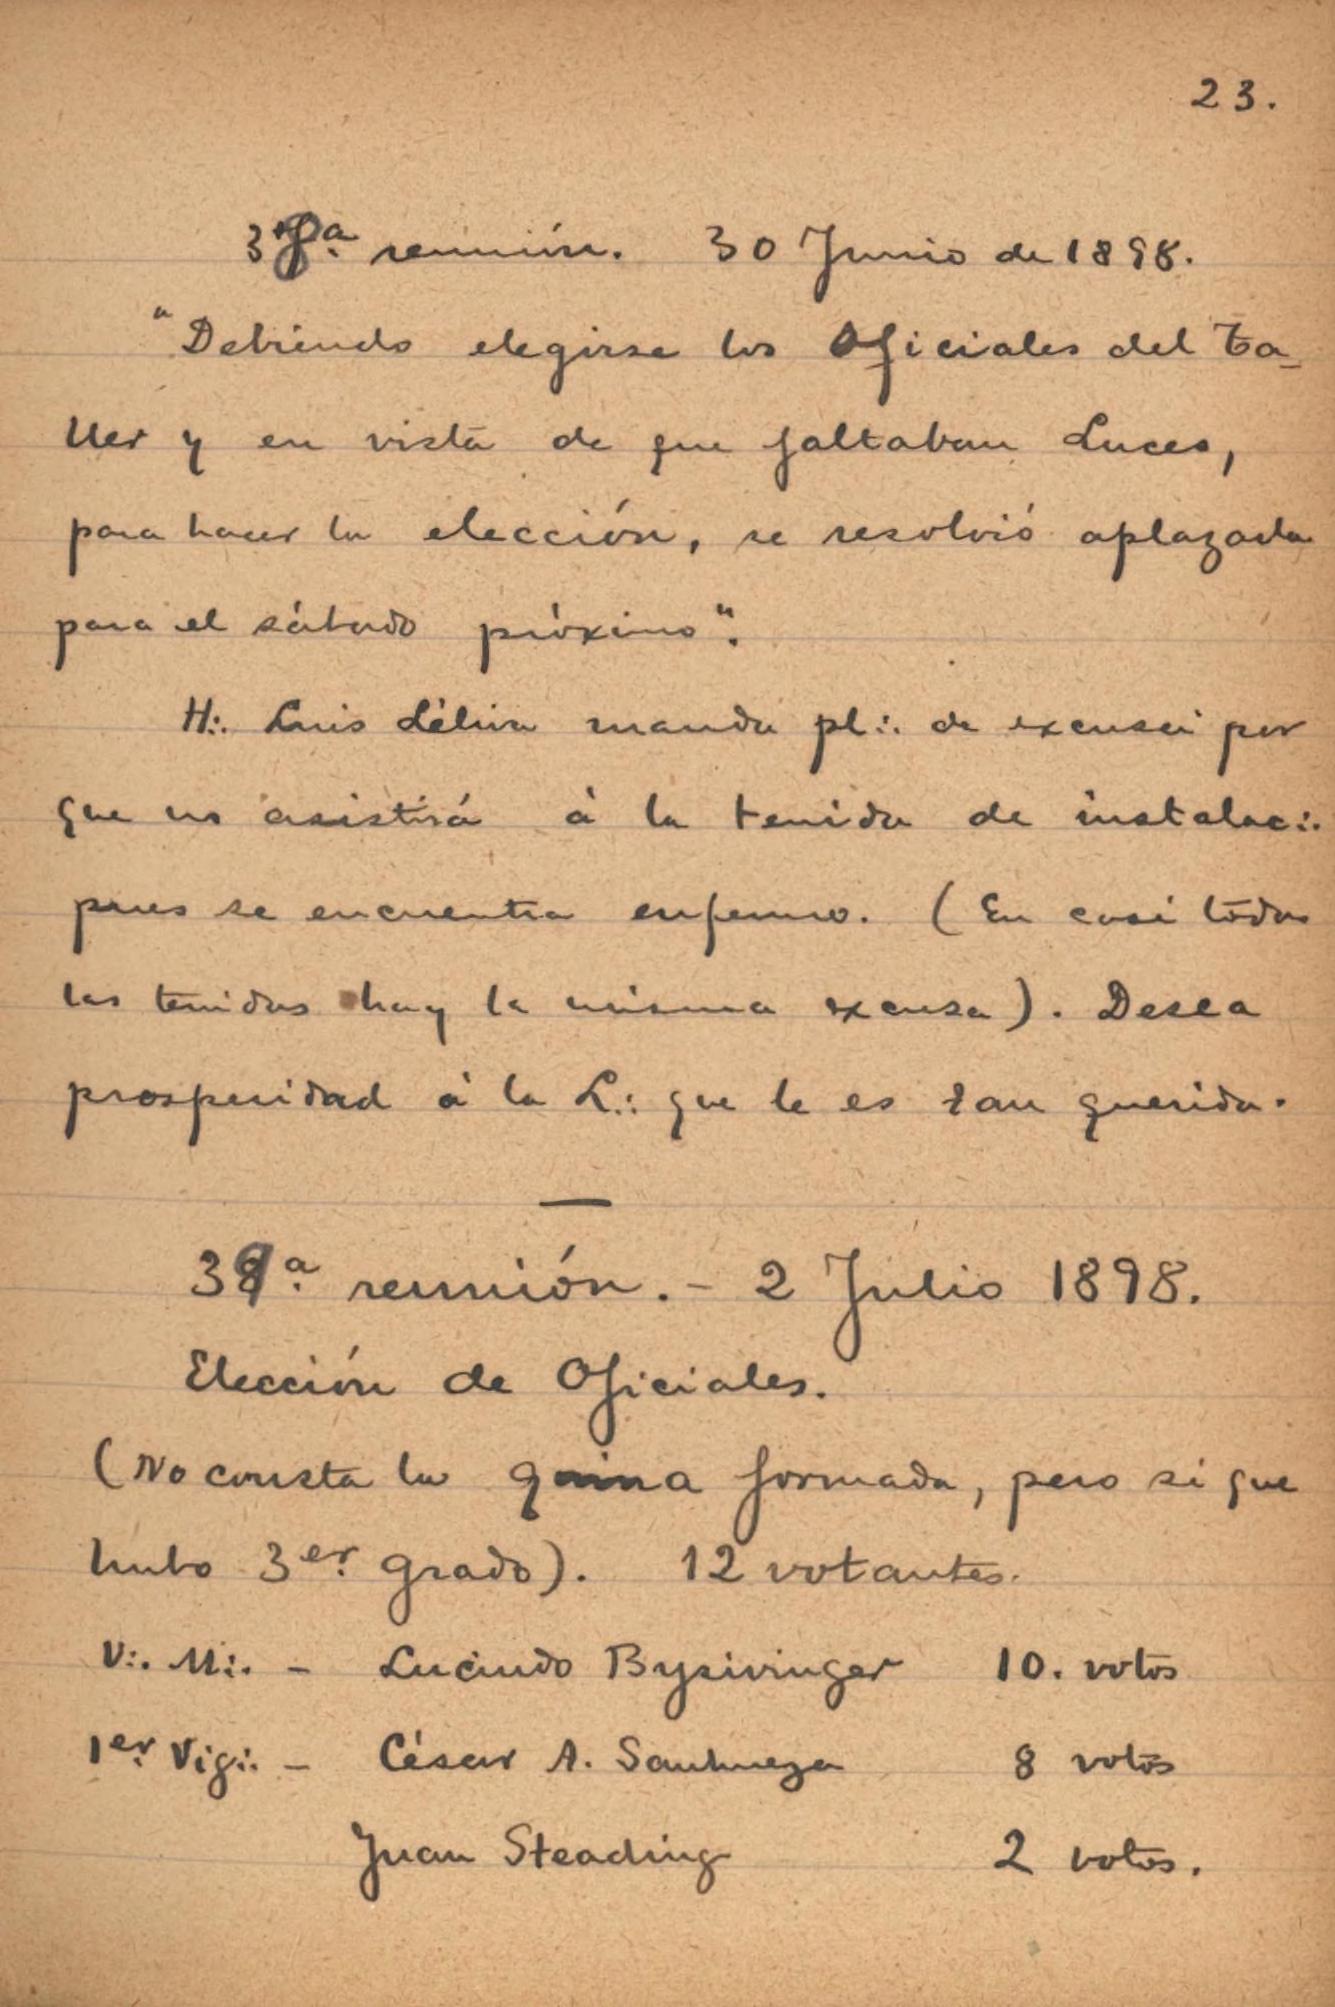 23.
38ª reunión. 30 Junio de 1898.
"Debiendo elegirse los Oficiales del ta-
ller y en vista de que faltaban Luces,
para hacer la elección, se resolvió aplazarla
para el sábado próximo".
H∴ Luis Lébin manda pl∴ de excusa por
que no asistirá á la tenida de instalac∴
pues se encuentra enfermo. (En casi todas
las tenidas hay la misma excusa). Desea
prosperidad á la L∴ que le es tan querida.
—
39ª reunión. - 2 Julio 1898.
Elección de Oficiales.
(No consta la quina formada, pero si que
hubo 3er. grado). 12 votantes.
V∴ M∴ - Lucindo Bysivinger 10. votos
1er. Vig∴ - César A. Sanhueza 8 votos
Juan Steading 2 votos.